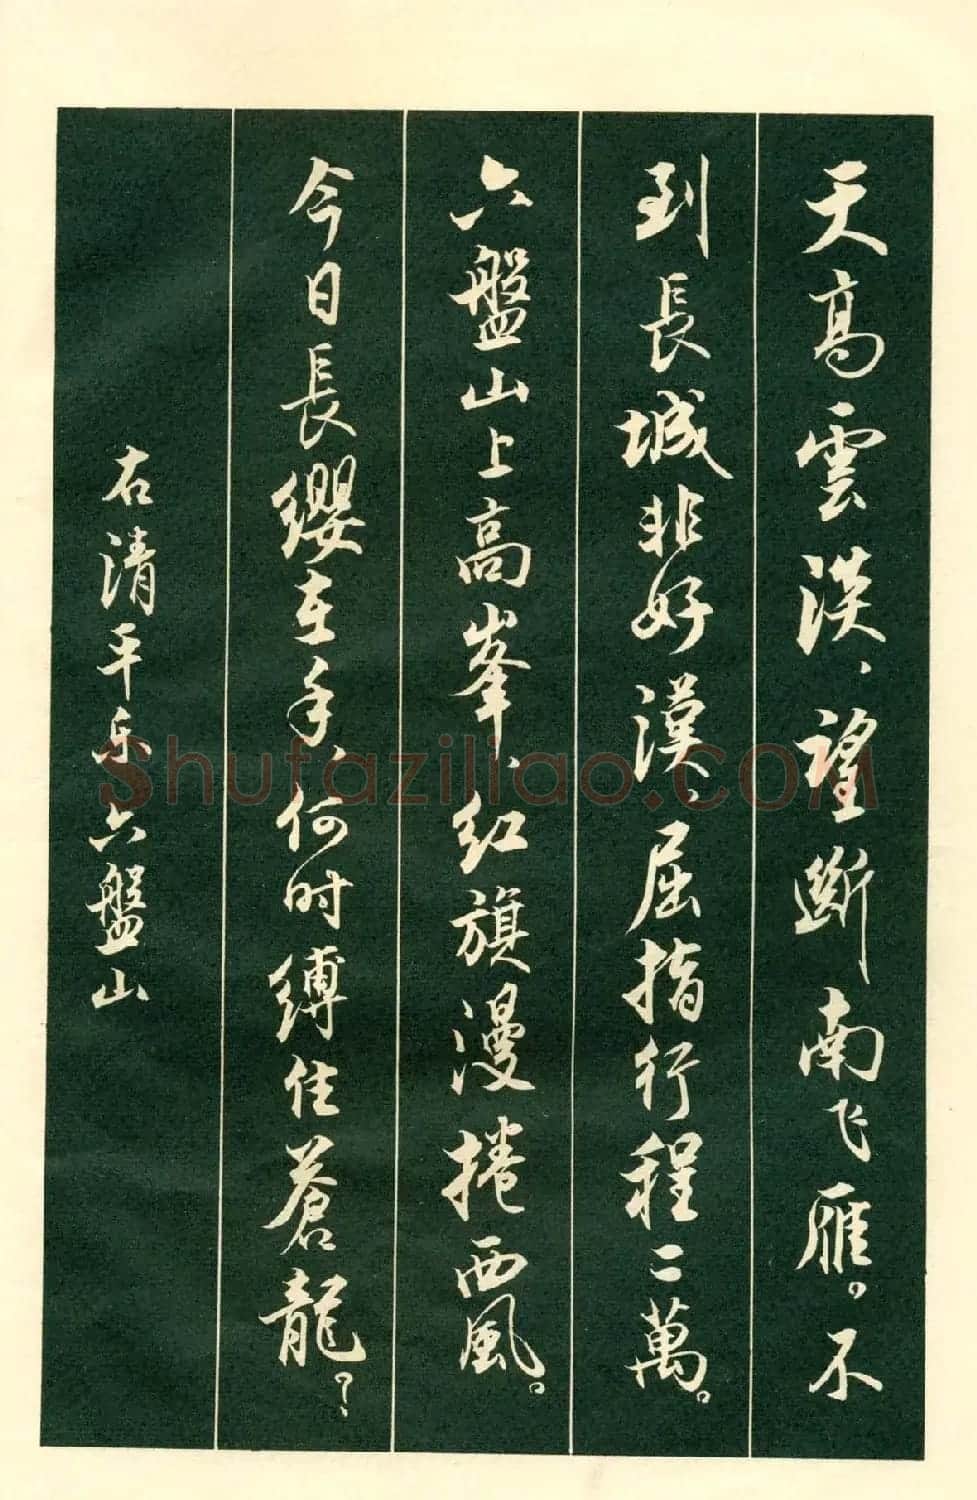 天高雲淡、望斷南飞雁。不
到長城非好漢、屈指行程二萬。
六盤山上高峯、红旗漫捲西風。
今日長纓在手、何时縛住蒼龍？
右清平乐六盤山
Shufaziliao.COM